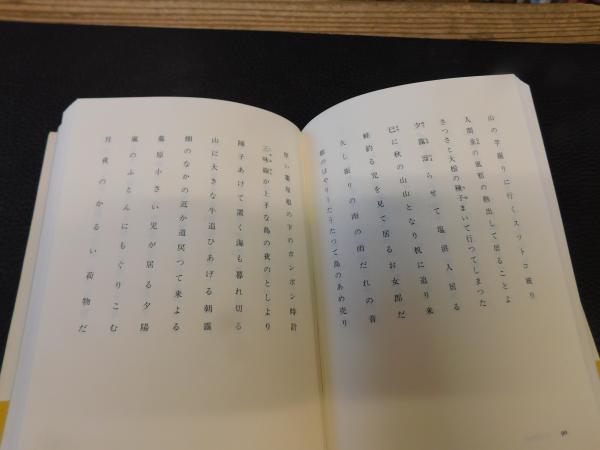 山の芋掘りに行くスツトコ被り
人間並の風邪の熱出して居ることよ
さつさと大根の種子まいて行つてしまつた
夕靄溜らせて塩浜人居る
已に秋の山山となり机に迫り来
蜂釣る児を見て居るお女郎だ
久し振りの雨の雨だれの音
都のはやりうたうたつて島のあめ売り
厚い藁屋根の下のボンボン時計
三味線が上手な島の夜のとしより
障子あけて置く海も暮れ切る
山に大きな牛追ひあげる朝靄
畑のなかの近か道戻つて来よる
墓原小さい児が居る夕陽
嵐のふとんにもぐりこむ
月夜のかるい荷物だ